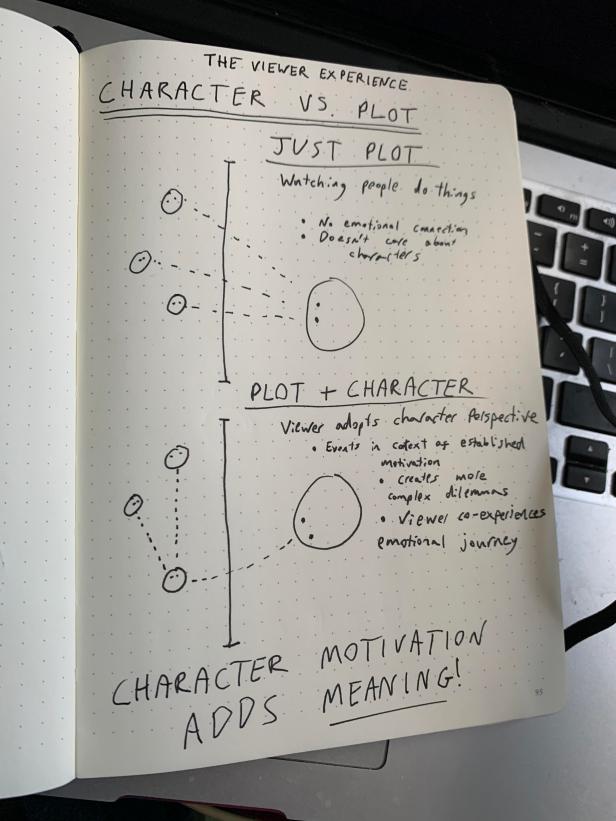 THE VIEWER EXPERIENCE
CHARACTER VS. PLOT
JUST PLOT
Watching people do things
• No emotional connection
• Doesn't care about
characters
PLOT + CHARACTER
Viewer adopts character Perspective
• Events in cotext of established
motivation
• creates more
complex dilemmas
• Viewer co-experiences
emotional journey
CHARACTER MOTIVATION
ADDS MEANING!
95